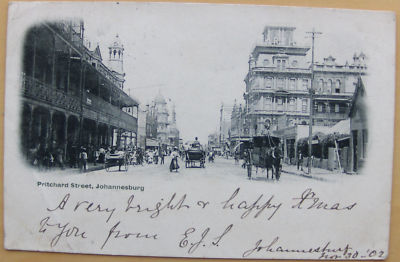 Pritchard Street, Johannesburg
A very bright & happy X'mas
to you from E.J.S.
Johannesburg
Nov 30 - '02